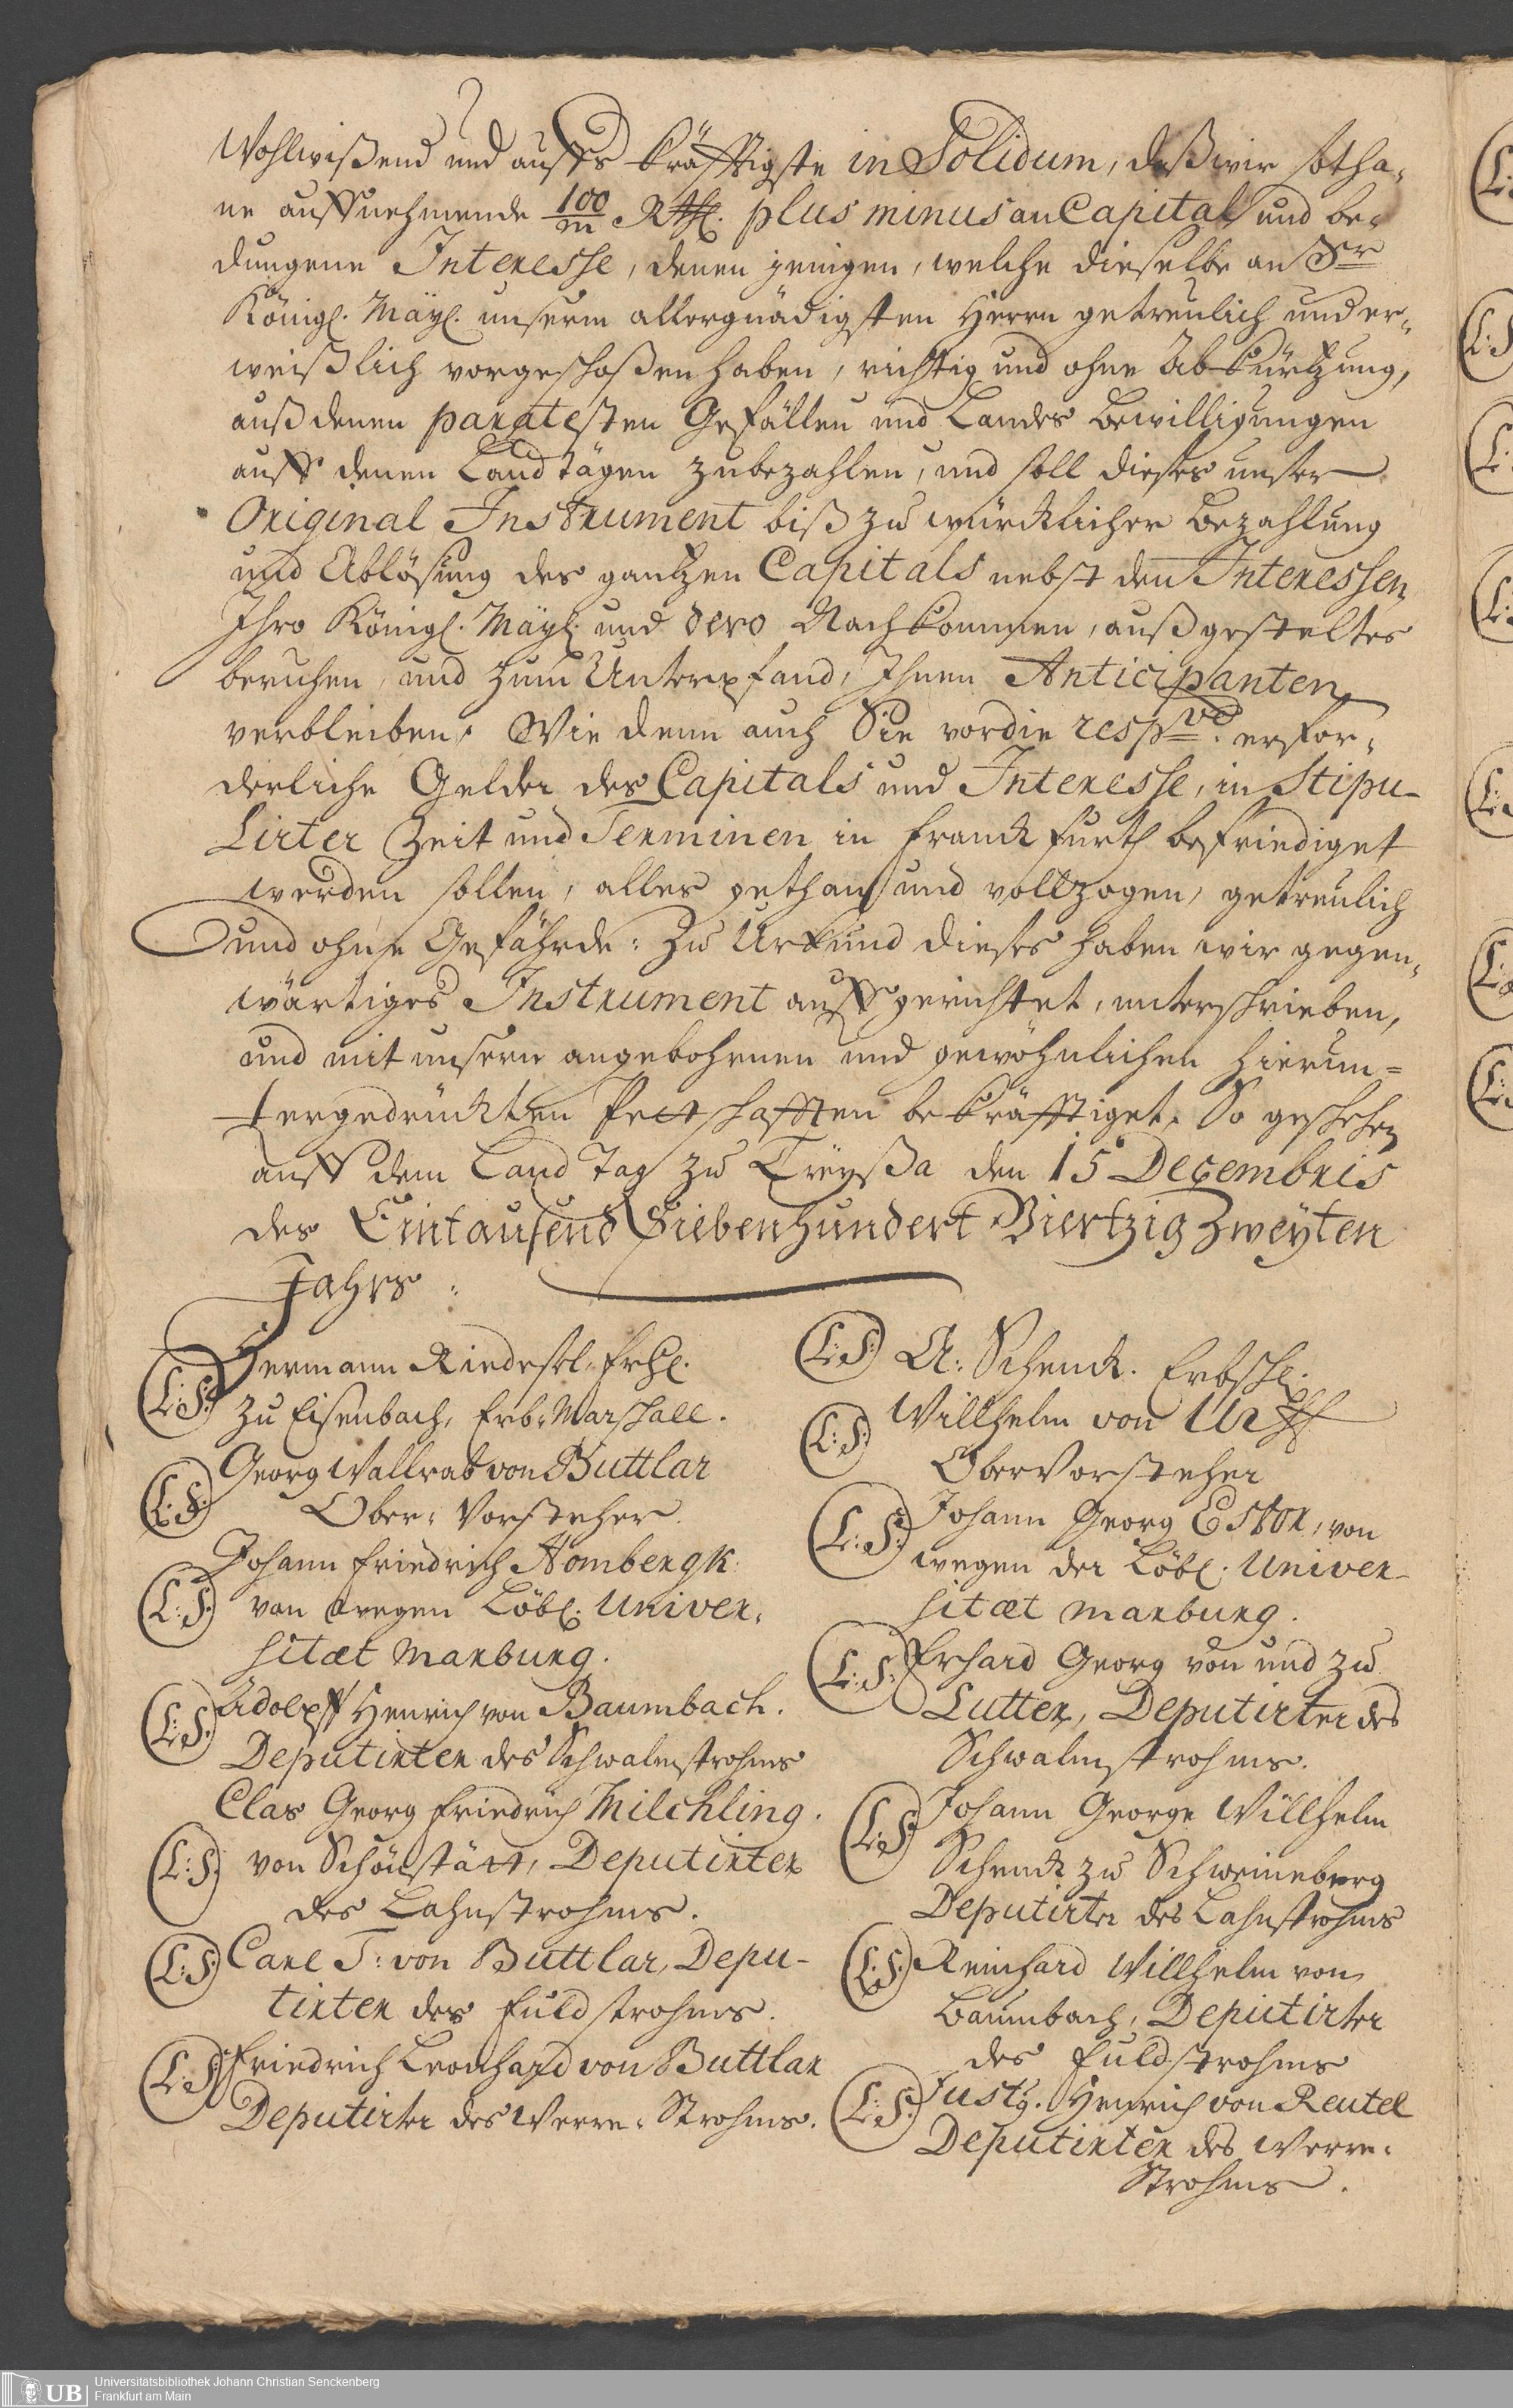 Wohlwißend und auffs kräfftigste in Solidum, daß wir sotha-
ne auffnehmende 100/m Rthl. plus minus an Capital und be-
dungene Interesse, denen jenigen, welche dieselbe an Sr
Königl. Mayl. unserm allergnädigsten Herrn getreulich und er-
weißlich vorgeschoßen haben, richtig und ohne Abkürtzung,
auß denen paratesten Gefällen und Landes Bewilligungen
auff denen Landtägen zubezahlen, und soll dieses unser
Original Instrument biß zu würcklicher Bezahlung
und Ablösung des gantzen Capitals nebst den Interessen,
Ihro Königl. Mayl. und dero Nachkommen, außgesteltes
beruhen, und zum Unterpfand, Ihnen Anticipanten
verbleiben. Wie denn auch Sie vor die respve. erfor-
derliche Gelder des Capitals und Interesse, in Stipu-
Lirter Zeit und Terminen in Franckfurth befriediget
werden sollen, alles gethan und vollzogen, getreulich
und ohne Gefährde: Zu Urkund dieses haben wir gegen-
wärtiges Instrument auffgerichtet, unterschrieben,
und mit unsern angebohrnen und gewöhnlichen hierun-
tergedruckten Pettschafften bekräfftiget. So geschehen
auff dem Land Tag zu Treyßa den 15 Decembris
des Eintausend Siebenhundert Viertzig Zweyten
Jahrs:
Hermann Riedesel Frhl.
(L: S:) zu Eisenbach, Erb-Marschall.
Georg Wallrab von Buttlar
(L: S:) Ober-Vorsteher.
Johann Friedrich Hombergk
(L: S:) von wegen Löbl. Univer-
sitæt Marburg.
(L: S:) Adolph Henrich von Baumbach.
Deputirter des Schwalmstrohms
Clas Georg Friedrich Milchling.
(L: S:) von Schönstätt, Deputirter
des Lahnstrohms.
(L: S:) Carl T: von Buttlar, Depu-
tirter des Fuldstrohms.
(L: S:) Friedrich Leonhard von Buttlar
Deputirter des Werre-Strohms.
(L: S:) A: Schenck. Erbschl.
(L: S:) Willhelm von Urff
Obervorsteher
(L: S:) Johann Georg Estor, von
wegen der Löbl. Univer-
sitæt Marburg.
(L: S:) Erhard Georg von und zu
Lutter, Deputirter des
Schwalmstrohms.
(L: S:) Johann George Willhelm
Schenck zu Schweineberg
Deputirter des Lahnstrohms
(L: S:) Reinhard Willhelm von
Baumbach, Deputirter
des Fuldstrohms
(L: S:) Justg. Henrich von Reutel
Deputirter des Werre-
Strohms.
UB Universitätsbibliothek Johann Christian Senckenberg
Frankfurt am Main